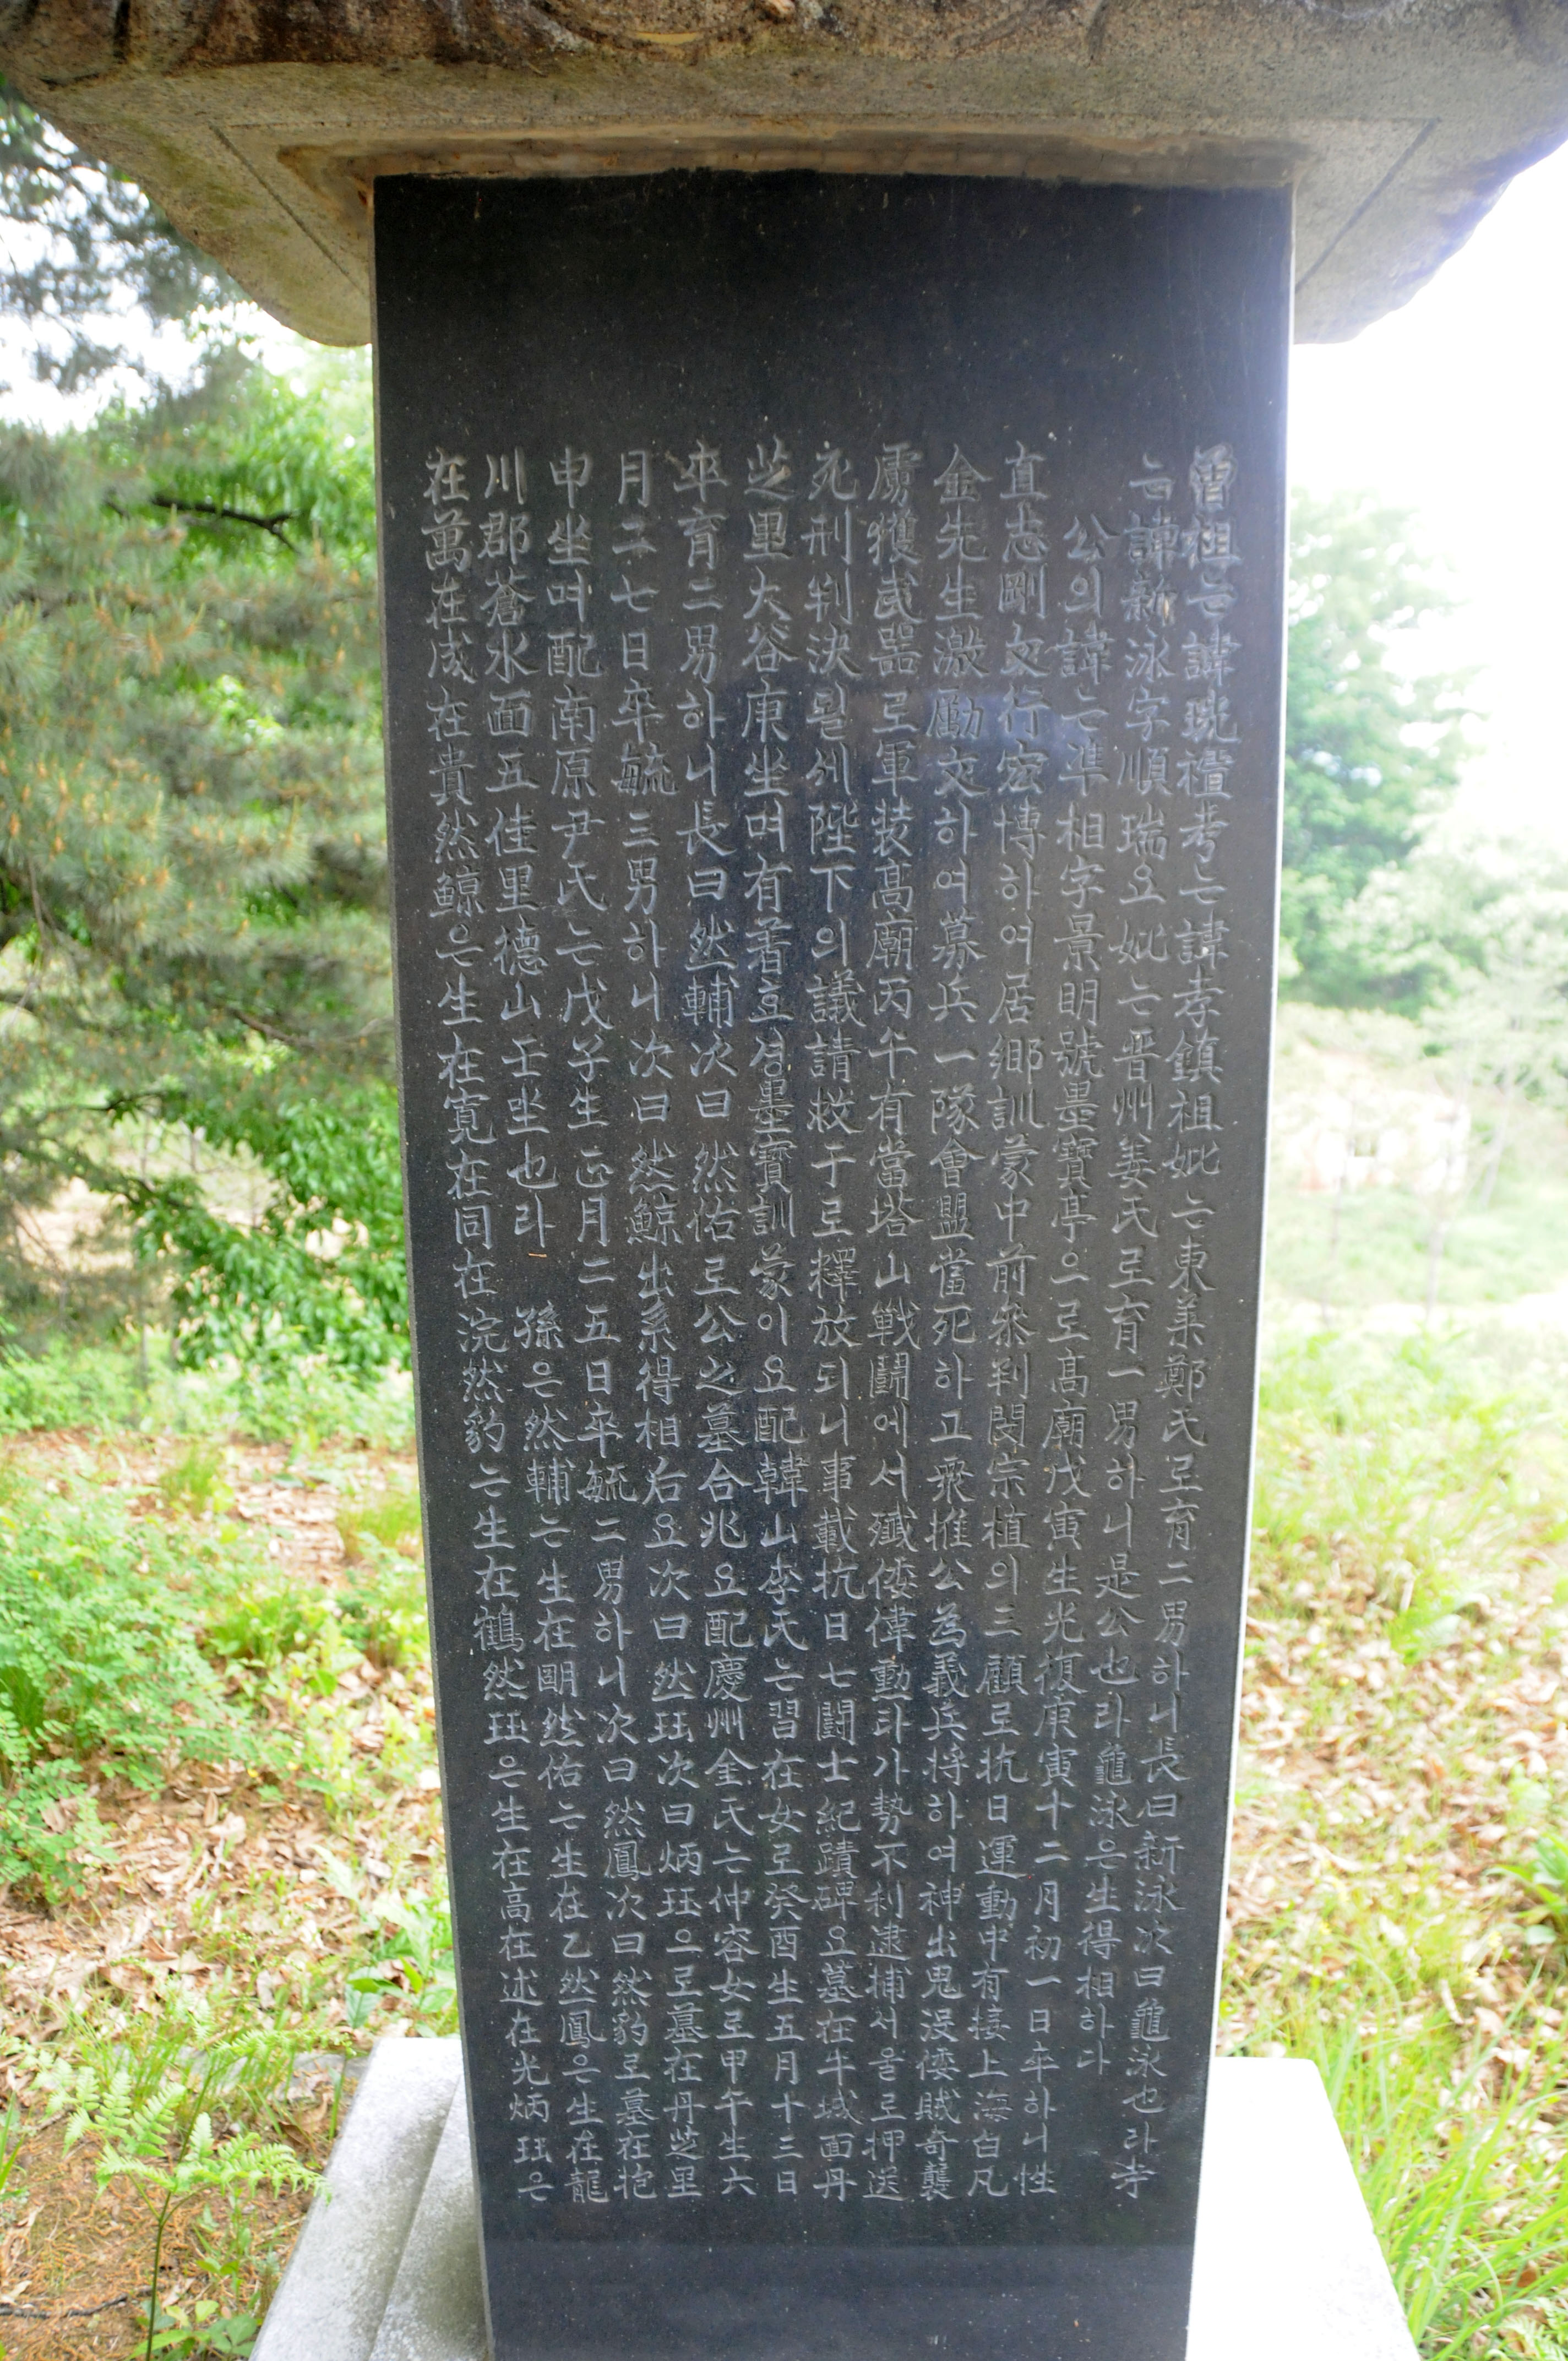 曾祖는諱珖禮考는諱孝鎮祖妣는東萊鄭氏로育二男하니長曰新泳次曰龜泳也라考
는諱新泳字順瑞요妣는晋州姜氏로育一男하니是公也라龜泳은生得相하다
公의諱는準相字景明號墨寶亭으로高廟戊寅生光復庚寅十二月初一日卒하니性
直志剛文行宏博하여居鄉訓蒙中前參判閔宗植의三顧로抗日運動中有接上海白凡
金先生激勵文하여募兵一隊會盟當死하고衆推公為義兵將하여神出鬼没倭賊奇襲
虜獲武器로軍装高廟丙午有當塔山戦鬪에서殲倭偉勳타가勢不利逮捕서울로押送
元刑判決될세陛下의議請救于로釋放되니事載抗日七鬪士紀蹟碑요墓在牛城面丹
芝里大谷庚坐며有著효성墨寶訓蒙이요配韓山李氏는習在女로癸酉生五月十三日
卒育二男하니長曰然輔次曰然佑로公之墓合兆요配慶州金氏는仲容女로甲午生六
月二七日卒毓三男하니次曰然鯨出系得相后요次曰然珏次曰炳珏으로墓在丹芝里
申坐며配南原尹氏는戊子生正月二五日卒毓二男하니次曰然鳳次曰然豹로墓在抱
川郡蒼水面五佳里德山壬坐也라 孫은然輔는生在明然佑는生在乙然鳳은生在龍
在萬在成在貴然鯨은生在寛在同在浣然豹는生在鶴然珏은生在高在述在光炳珏은